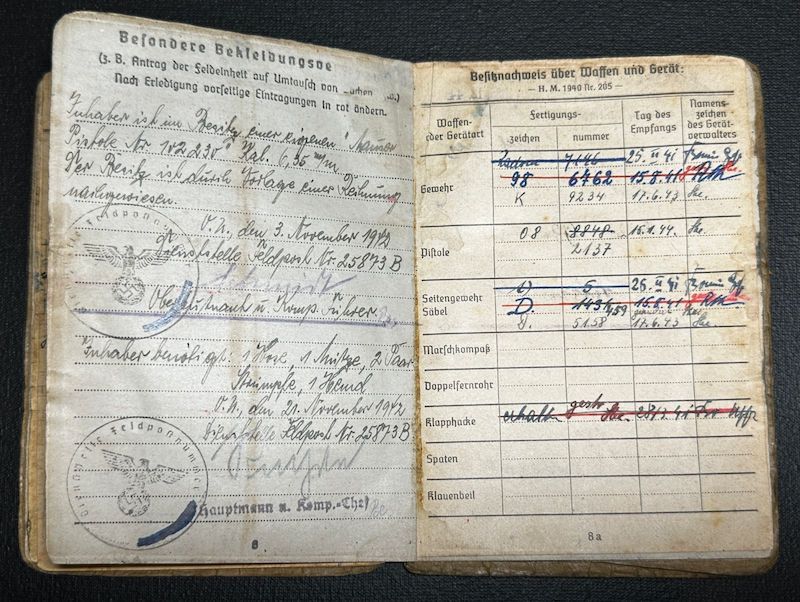 Besondere Bekleidungsve
(z. B. Antrag der Feldeinheit auf Umtausch von
Nach Erledigung vorseitige Eintragungen in rot ändern.
Inhaber ist im Besitz einer eigenen "Mauser
Pistole Nr 102 230" Kal. 6,35 m/m
Der Besitz ist durch Vorlage einer Rechnung
nachgewiesen.
O.U., den 3. November 1942
Dienststelle Feldpost Nr. 25873 B
Oberleutnant u. Komp. Führer
Inhaber benötigt: 1 Hose, 1 Mütze, 2 Paar
Strümpfe, 1 Hemd
O.U., den 21. November 1942
Dienststelle Feldpost Nr. 25873 B
Hauptmann u. Komp.-Chef
8
Besitznachweis über Waffen und Gerät:
— H. M. 1940 Nr. 205 —
Waffen- oder Gerätart
Fertigungs-
zeichen
nummer
Tag des Empfangs
Namens- zeichen des Gerät- verwalters
7146 25. II 41
Gewehr 98 6762 15.8.41
K 9234 17.6.43
Pistole 08 8848 15.1.44.
2137
5 26. II 41
Seitengewehr Säbel D. 1434 15.8.41
D. 5158 17.6.43
Marschkompaß
Doppelfernrohr
Klapphacke erhalt.
Spaten
Klauenbeil
8a